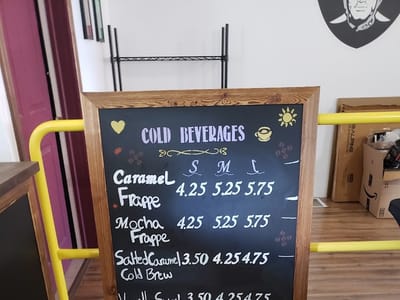 COLD BEVERAGES
S M L
Caramel Frappe 4.25 5.25 5.75
Mocha Frappe 4.25 5.25 5.75
Salted Caramel Cold Brew 3.50 4.25 4.75
3.50 4.25 4.75